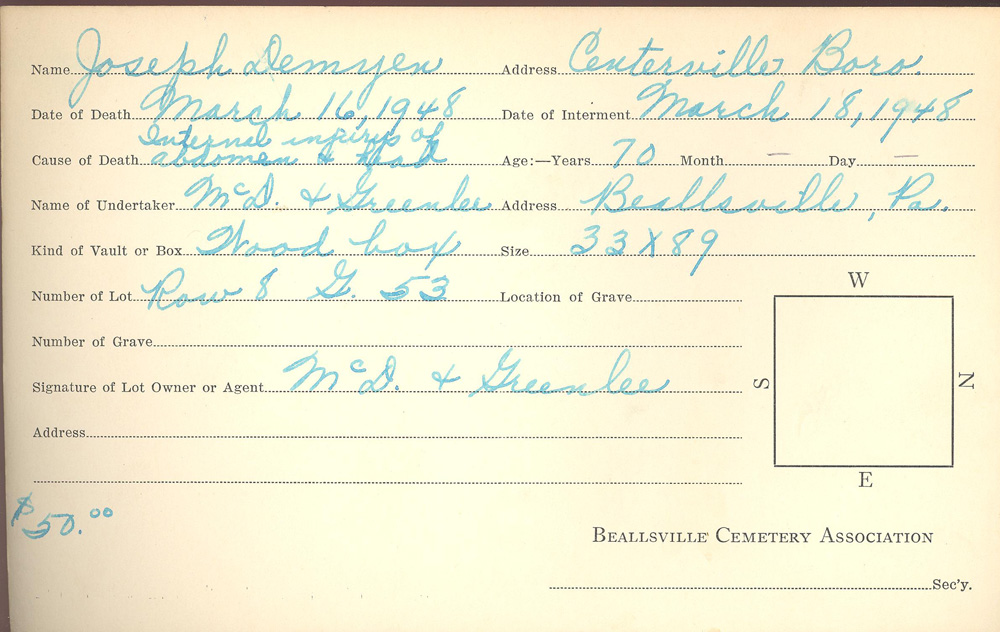 Name Joseph Demyen Address Centerville Boro.
Date of Death March 16, 1948 Date of Interment March 18, 1948
Internal injurys of
Cause of Death abdomen & head Age:—Years 70 Month – Day –
Name of Undertaker McD. & Greenlee Address Beallsville, Pa.
Kind of Vault or Box Wood box Size 33 X 89
Number of Lot Row 8 G. 53 Location of Grave
W
Number of Grave
S N
Signature of Lot Owner or Agent McD. & Greenlee
Address
E
$50.00
BEALLSVILLE CEMETERY ASSOCIATION
Sec'y.